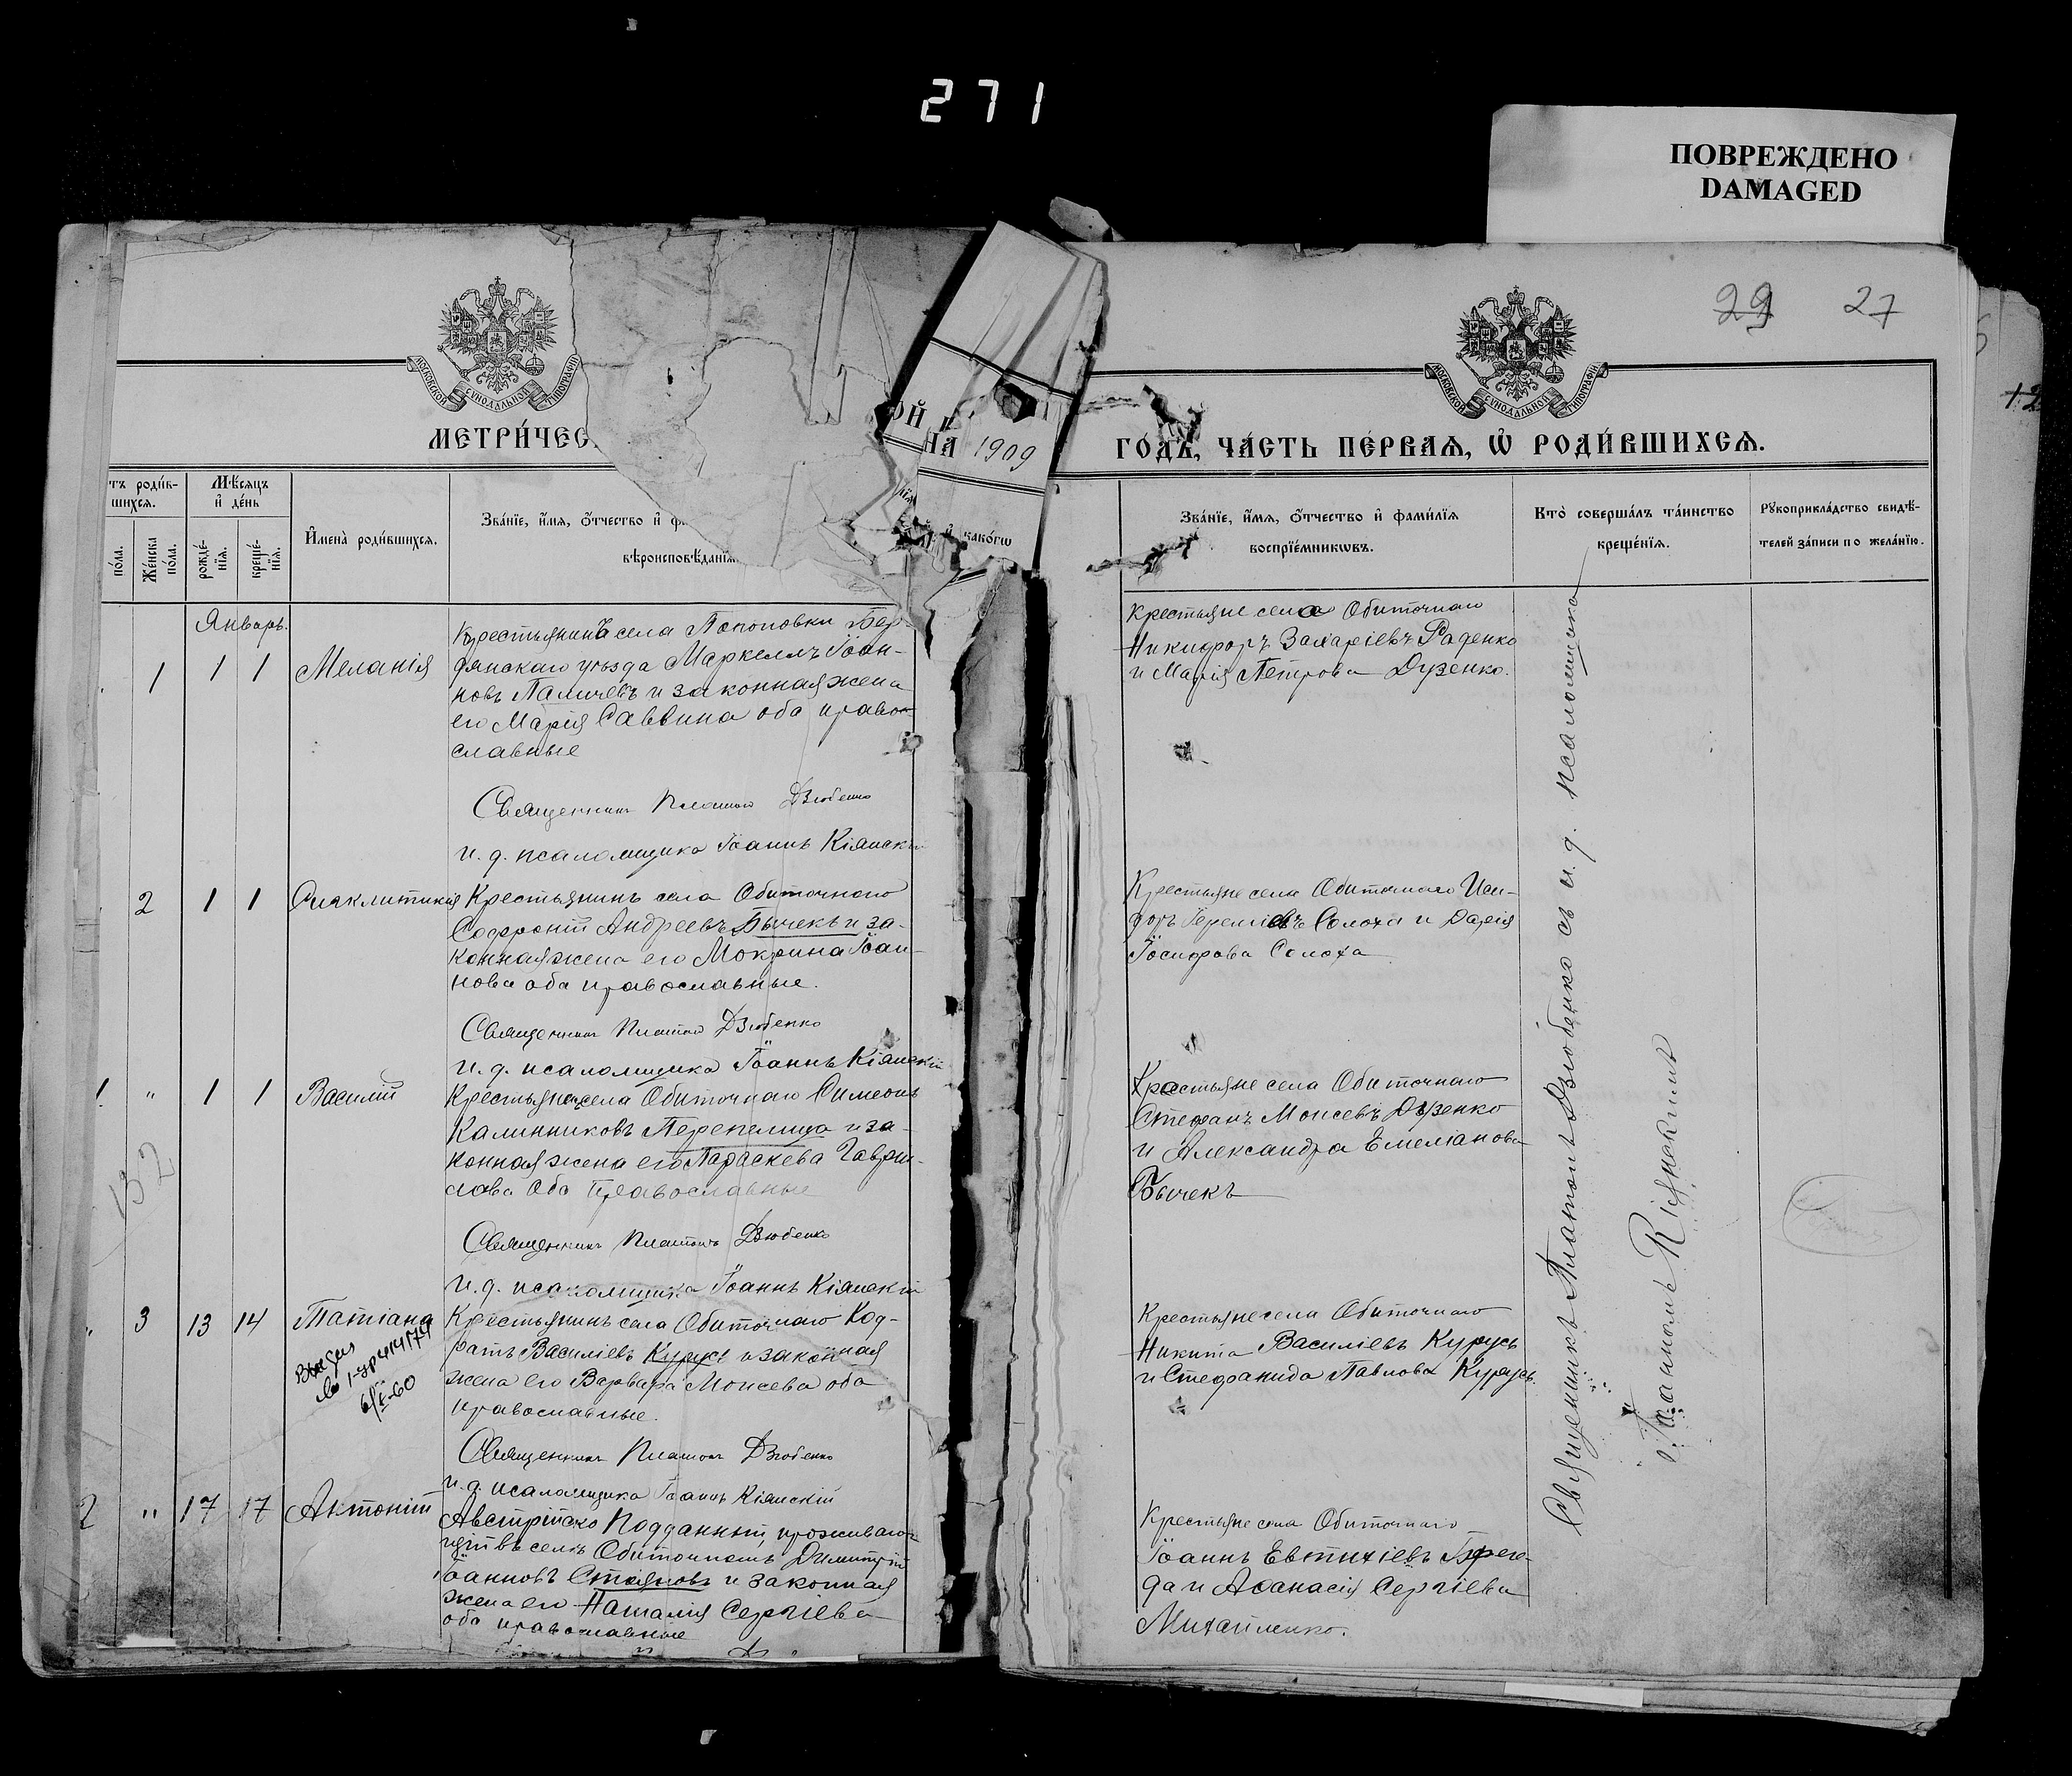 271
ПОВРЕЖДЕНО
DAMAGED
29 27
МОСКОВСКОЙ СУНОДАЛЬНОЙ ТИПОГРАФІИ
МОСКОВСКОЙ СУНОДАЛЬНОЙ ТИПОГРАФІИ
МЕТРИ́ЧЕС
ОЙ
НА 1909
ГО́ДЪ, ЧА́СТЬ ПЕ́РВАЯ, Ѡ РОДИ́ВШИХСЯ.
тъ роди́в-
шихся.
Мѣ́сяцъ
и҆ де́нь
по́ла.
Же́нска
по́ла.
рожде́-
нїя.
креще́-
нїя.
И҆мена̀ роди́вшихся.
Зва́нїе, и҆́мя, ѻ҆́тчество и҆ ф
вѣроисповѣ́данїя
и҆ како́гѡ
Зва́нїе, и҆́мя, ѻ҆́тчество и҆ фами́лїя
воспрїе́мникѡвъ.
Кто̀ соверша́лъ та́инство
креще́нїя.
Рꙋкоприкла́дство свидѣ́-
телей за́писи по жела́нїю.
Январь.
1 1 1 Меланія
Крестьянинъ села Попоповки Бер-
дянскаго уѣзда Маркеллъ Іоан-
новъ Паличевъ и законная жена
его Марія Саввина оба право-
славные
Священникъ Платонъ Дзюбенко
и. д. псаломщика Іоаннъ Кіянскій
Крестьяне села Обиточнаго
Никифоръ Захаріевъ Раденко
и Марія Петрова Дузенко.
2 1 1 Синклитикія
Крестьянинъ села Обиточнаго
Софроній Андреевъ Бычекъ и за-
конная жена его Мокрина Іоан-
нова оба православные.
Священникъ Платонъ Дзюбенко
и. д. псаломщика Іоаннъ Кіянскій
Крестьяне села Обиточнаго Иси-
доръ Іереміевъ Солоха и Дарія
Іосифова Солоха
1. " 1 1 Василій
Крестьянинъ села Обиточнаго Симеонъ
Калинниковъ Перепелица и за-
конная жена его Параскева Гаври-
лова Оба Православные
132
Священникъ Платонъ Дзюбенко
и. д. псаломщика Іоаннъ Кіянскій
Крестьяне села Обиточнаго
Стефанъ Моисевъ Дузенко
и Александра Емеліанова
Бычекъ
" 3 13 14 Татіана
60
Крестьянинъ села Обиточнаго Код-
ратъ Василіевъ Курусъ и законная
жена его Варвара Моисева оба
православные.
Священникъ Платонъ Дзюбенко
и. д. псаломщика Іоаннъ Кіянскій
Крестьяне села Обиточнаго
Никита Василіевъ Курусь
и Стефанида Павлова Курусь.
2 " 17 17 Антоній
Австрійско Подданный, проживаю-
щій въ селѣ Обиточномъ Димитрій
Іоанновъ Стояновъ и законная
жена его Наталія Сергіева
оба православные
Крестьяне села Обиточнаго
Іоаннъ Евтихіевъ
да и Афанасія Сергіева
Михайленко.
Священникъ Платонъ Дзюбенко съ и. д. псаломщика
Іоанномъ Кіянскимъ